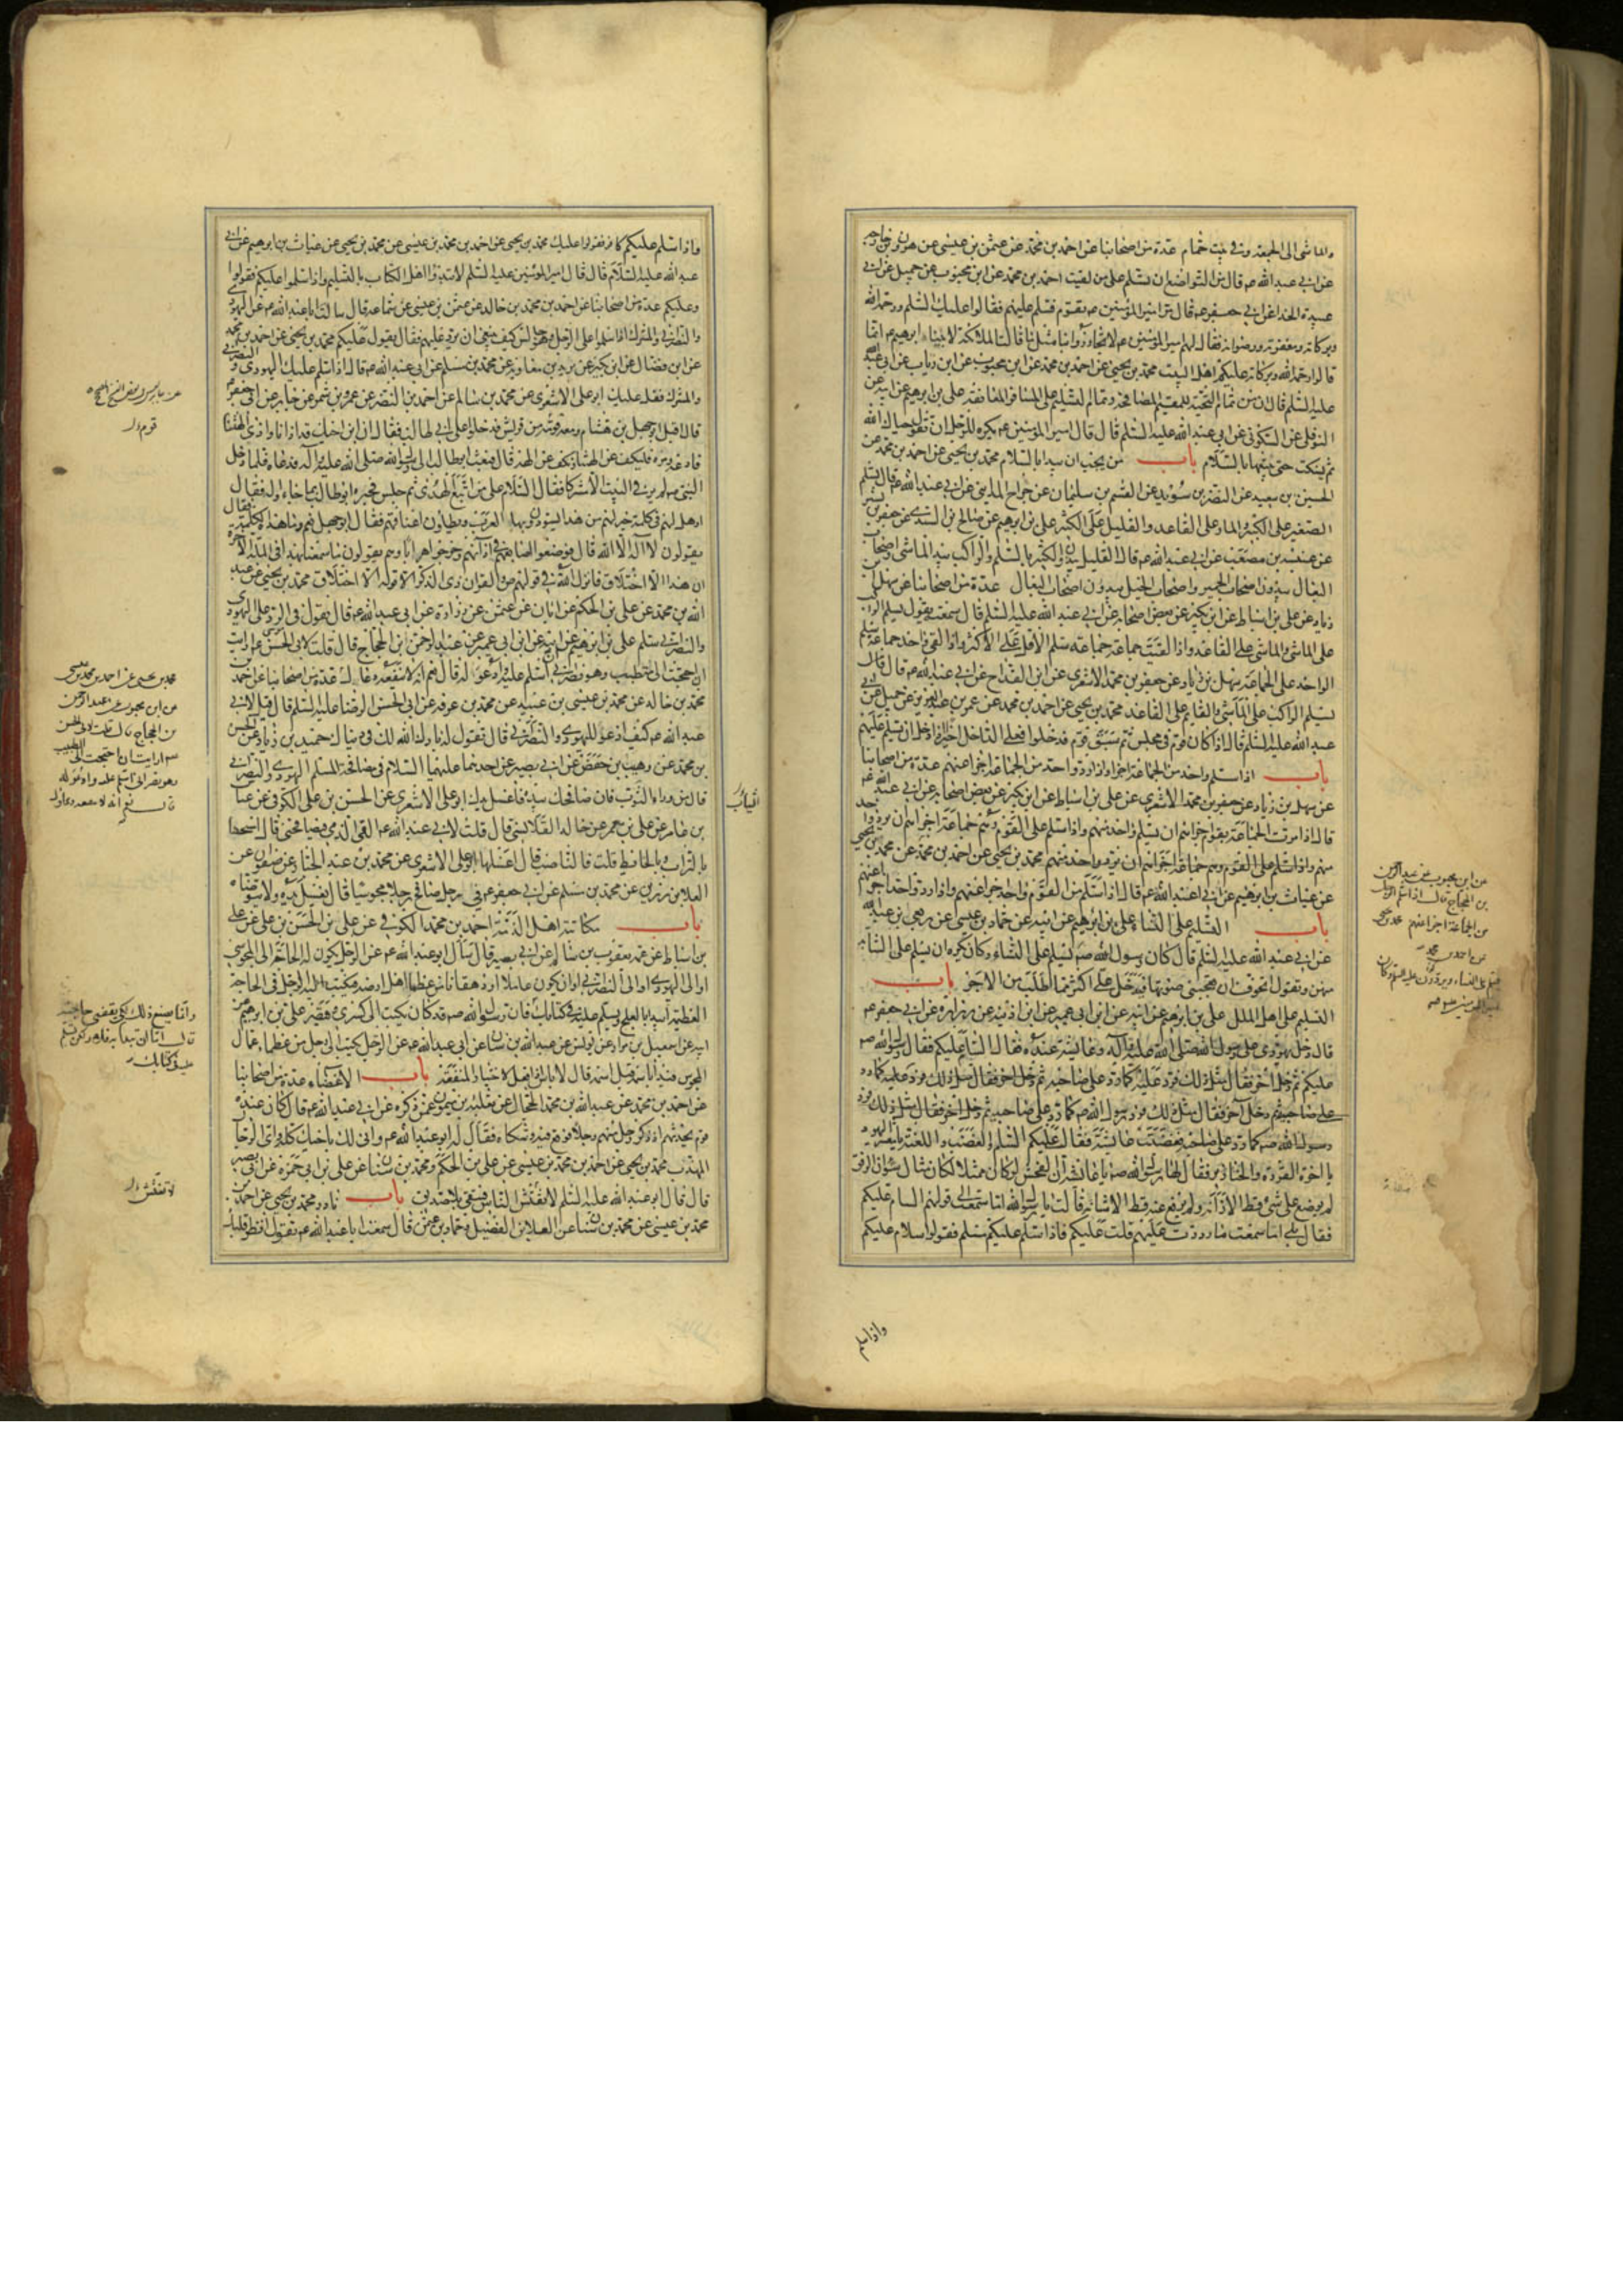 والماشى الى الجمعة وفى بيت حمام عدة من اصحابنا عن احمد بن محمد عن عثمن بن عيسى عن هرون بن خارجه
عن ابى عبد الله ع قال من التواضع ان تسلم على من لقيت احمد بن محمد عن ابن محبوب عن جميل عن ابى
عبيدة الحذاء عن ابى جعفر ع قال مر امير المؤمنين ع بقوم فسلم عليهم فقالوا عليك السلم ورحمة الله
وبركاته ومغفرته ورضوانه فقال لهم امير المؤمنين ع لا تجاوزوا بنا مثل ما قالت الملائكة لابينا ابرهيم ع انما
قالوا رحمة الله وبركاته عليكم اهل البيت محمد بن يحيى عن احمد بن محمد عن ابن محبوب عن ابن رياب عن ابى عبد الله
عليه السلم قال ان من تمام التحية للمقيم المصافحة وتمام التسليم على المسافر المعانقة على بن ابرهيم عن ابيه عن
النوفلى عن السكونى عن ابى عبد الله عليه السلم قال قال امير المؤمنين ع يكره للرجل ان يقول حياك الله
ثم يسكت حتى يتبعها بالسلام باب من يجب ان يبدا بالسلام محمد بن يحيى عن احمد بن محمد عن
الحسين بن سعيد عن النضر بن سويد عن القسم بن سليمان عن جراح المداينى عن ابى عبد الله ع قال يسلم
الصغير على الكبير والمار على القاعد والقليل على الكثير على بن ابرهيم عن صالح بن السندى عن جعفر بن بشير
عن عنبسة بن مصعب عن ابى عبد الله ع قال القليل يبدؤن الكثير بالسلم والراكب يبدا الماشى واصحاب
البغال يبدؤن اصحاب الحمير واصحاب الخيل يبدؤن اصحاب البغال عدة من اصحابنا عن سهل بن
زياد عن على بن اسباط عن ابن بكير عن بعض اصحابه عن ابى عبد الله عليه السلم قال سمعته يقول يسلم الراكب
على الماشى والماشى على القاعد واذا لقيت جماعة جماعة سلم الاقل على الاكثر واذا لقى واحد جماعة سلم
الواحد على الجماعة سهل بن زياد عن جعفر بن محمد الاشعرى عن ابن القداح عن ابى عبد الله ع قال قال
يسلم الراكب على الماشى والقايم على القاعد محمد بن يحيى عن احمد بن محمد عن عمر بن عبد العزيز عن جميل عن ابى
عبد الله عليه السلم قال اذا كان قوم فى مجلس ثم سبق قوم فدخلوا فعلى الداخل اخيرا اذا دخل ان يسلم عليهم
باب اذا سلم واحد من الجماعة اجزاهم واذا رد واحد من الجماعة اجزا عنهم عدة من اصحابنا
عن سهل بن زياد عن جعفر بن محمد الاشعرى عن على بن اسباط عن ابن بكير عن بعض اصحابه عن ابى عبد الله ع
قال اذا مرت الجماعة بقوم اجزاهم ان يسلم واحد منهم واذا سلم على القوم وهم جماعة اجزاهم ان يرد واحد
منهم واذا سلم على القوم وهم جماعة اجزاهم ان يرد واحد منهم محمد بن يحيى عن احمد بن محمد عن محمد بن يحيى
عن غياث بن ابرهيم عن ابى عبد الله ع قال اذا سلم من القوم واحد اجزا عنهم واذا رد واحد اجزا عنهم
باب التسليم على النساء على بن ابرهيم عن ابيه عن حماد بن عيسى عن ربعى بن عبد الله
عن ابى عبد الله عليه السلم قال كان رسول الله ص يسلم على النساء وكان يكره ان يسلم على الشابه
منهن ويقول اتخوف ان يعجبنى صوتها فيدخل على اكثر مما اطلب من الاجر باب
التسليم على اهل الملل على بن ابرهيم عن ابيه عن ابن ابى عمير عن ابن اذينه عن زراره عن ابى جعفر ع
قال دخل يهودى على رسول الله صلى الله عليه واله وعايشة عنده فقال السام عليكم فقال رسول الله ص
عليكم ثم دخل اخر فقال مثل ذلك فرد عليه كما رد على صاحبه ثم دخل اخر فقال مثل ذلك فرد عليه كما رد
على صاحبيه ثم دخل آخر فقال مثل ذلك فرد رسول الله ص كما رد على صاحبيه ثم دخل اخر فقال مثل ذلك فرد
رسول الله ص كما رد على صاحبيه فغضبت عايشة فقالت عليكم السام والغضب واللعنة يا معشر اليهود
يا اخوة القردة والخنازير فقال لها رسول الله ص يا عايشة ان الفحش لو كان ممثلا لكان مثال سوء ان الرفق
لم يوضع على شىء قط الا زانه ولم يرفع عنه قط الا شانه قالت يا رسول الله اما سمعت الى قولهم السام عليكم
فقال بلى اما سمعت ما رددت عليهم قلت عليكم فاذا سلم عليكم مسلم فقولوا سلام عليكم
واذا سلم
عن ابن محبوب عن عبد الرحمن
بن الحجاج قال اذا سلم الرجل
من الجماعة اجزا عنهم محمد بن يحيى
عن احمد بن محمد
واذا سلم عليكم كافر فقولوا عليك محمد بن يحيى عن احمد بن محمد بن عيسى عن محمد بن يحيى عن غياث بن ابرهيم عن ابى
عبد الله عليه السلام قال قال امير المؤمنين عليه السلم لا تبدؤا اهل الكتاب بالتسليم واذا سلموا عليكم فقولوا
وعليكم عدة من اصحابنا عن احمد بن محمد بن خالد عن عثمن بن عيسى عن سماعة قال سالت ابا عبد الله ع عن اليهودى
والنصرانى والمشرك اذا سلموا على الرجل وهو جالس كيف ينبغى ان يرد عليهم فقال يقول عليكم محمد بن يحيى عن احمد بن محمد
عن ابن فضال عن ابن بكير عن بريد بن معاويه عن محمد بن مسلم عن ابى عبد الله ع قال اذا سلم عليك اليهودى والنصرانى
والمشرك فقل عليك ابو على الاشعرى عن محمد بن سالم عن احمد بن النضر عن عمرو بن شمر عن جابر عن ابى جعفر ع
قال اقبل ابو جهل بن هشام ومعه قوم من قريش فدخلوا على ابى طالب فقالوا ان ابن اخيك قد اذانا واذى الهتنا
فادعه ومره فليكف عن الهتنا ونكف عن الهه قال فبعث ابو طالب الى رسول الله صلى الله عليه واله فدعاه فلما دخل
النبى ص لم ير فى البيت الا مشركا فقال السلام على من اتبع الهدى ثم جلس فخبره ابو طالب بما جاءوا له فقال
او هل لهم فى كلمة خير لهم من هذا يسودون بها العرب ويطاون اعناقهم فقال ابو جهل نعم وما هذه الكلمة فقال
يقولون لا اله الا الله قال فوضعوا اصابعهم فى اذانهم وخرجوا هرابا وهم يقولون ما سمعنا بهذا فى الملة الآخرة
ان هذا الا اختلاق فانزل الله فى قولهم ص والقران ذى الذكر الى قوله الا اختلاق محمد بن يحيى عن عبد
الله بن محمد عن على بن الحكم عن ابان عن عثمن عن زرارة عن ابى عبد الله ع قال تقول فى الرد على اليهودى
والنصرانى سلم على بن ابرهيم عن ابيه عن ابن ابى عمير عن عبد الرحمن بن الحجاج قال قلت لابى الحسن ع ارايت
ان احتجت الى متطبب وهو نصرانى اسلم عليه وادعو له قال نعم انه لا ينفعه دعاءك عدة من اصحابنا عن احمد بن
محمد بن خالد عن محمد بن عيسى بن عبيد عن محمد بن عرفه عن ابى الحسن الرضا عليه السلم قال قيل لابى
عبد الله ع كيف ادعو لليهودى والنصرانى قال تقول له بارك الله لك فى دنياك حميد بن زياد عن الحسن
بن محمد عن وهيب بن حفص عن ابى بصير عن احدهما عليهما السلام فى مصافحة المسلم اليهودى والنصرانى
قال من وراء الثوب فان صافحك بيده فاغسل يدك ابو على الاشعرى عن الحسن بن على الكوفى عن عباس
بن عامر عن على بن معمر عن خالد القلانسى قال قلت لابى عبد الله ع القى الذمى فيصافحنى قال امسحها
بالتراب وبالحايط قلت فالناصب قال اغسلها ابو على الاشعرى عن محمد بن عبد الجبار عن صفوان عن
العلا بن رزين عن محمد بن مسلم عن ابى جعفر ع فى رجل صافح رجلا مجوسيا قال يغسل يده ولا يتوضا
باب مكاتبة اهل الذمة احمد بن محمد الكوفى عن على بن الحسن بن على عن على
بن اسباط عن عمه يعقوب بن سالم عن ابى بصير قال سئل ابو عبد الله ع عن الرجل يكون له الحاجة الى المجوسى
او الى اليهودى او الى النصرانى او ان يكون عاملا او دهقانا من عظماء اهل ارضه فيكتب اليه الرجل فى الحاجة
العظيمة ايبدا بالعلج ويسلم عليه فى كتابك فان رسول الله ص قد كان يكتب الى كسرى وقيصر على بن ابرهيم عن
ابيه عن اسمعيل بن مرار عن يونس عن عبد الله بن سنان عن ابى عبد الله ع عن الرجل يكتب الى رجل من عظماء عمال
المجوس فيبدا باسمه قبل اسمه قال لا باس اذا فعل لاختيار المنفعة باب الاغضاء عدة من اصحابنا
عن احمد بن محمد عن عبد الله بن محمد الحجال عن ثعلبة بن ميمون عمن ذكره عن ابى عبد الله ع قال كان عنده
قوم يحدثهم اذ ذكر رجل منهم رجلا فوقع فيه وشكاه فقال له ابو عبد الله ع وانى لك باخيك كله واى الرجال
المهذب محمد بن يحيى عن احمد بن محمد بن عيسى عن على بن الحكم ومحمد بن سنان عن على بن ابى حمزة عن ابى بصير
قال قال ابو عبد الله عليه السلم لا تفتش الناس فتبقى بلا صديق باب نادر محمد بن يحيى عن احمد بن
محمد بن عيسى عن محمد بن سنان عن العلا بن الفضيل وحماد بن عثمن قال سمعنا ابا عبد الله ع يقول انظر قلبك
الثياب
قوم
محمد بن يحيى عن احمد بن محمد بن عيسى
عن ابن محبوب عن عبد الرحمن
بن الحجاج قال قلت لابى الحسن
ع ارايت ان احتجت الى الطبيب
وهو نصرانى اسلم عليه وادعو له
قال نعم انه لا ينفعه دعاؤك
وانما يصنع ذلك لكى يقضى حاجته
قال اما ان تبدا به فلا ولكن تسلم
عليه فى كتابك
لا تفتش